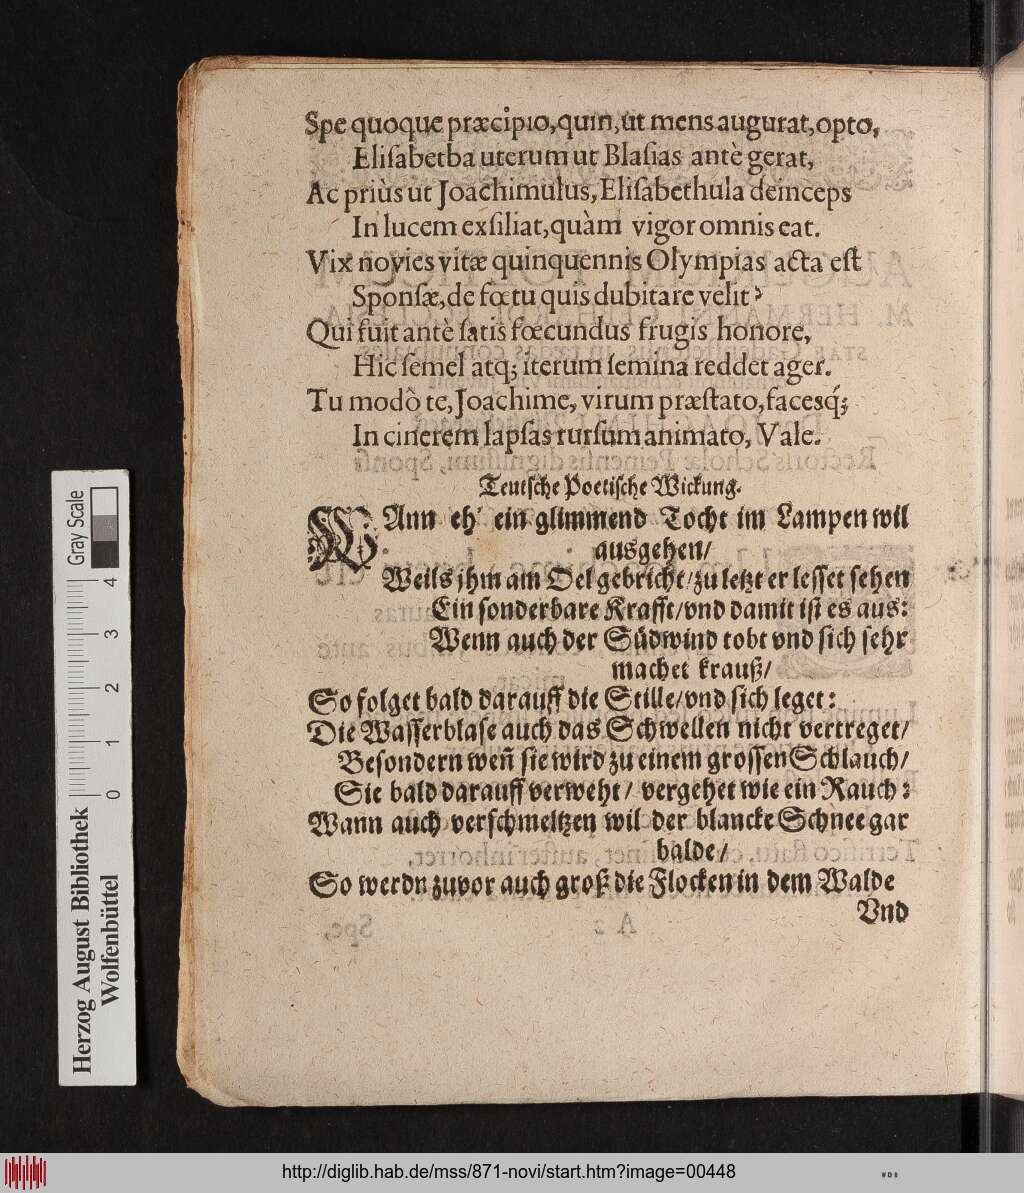 Spe quoque præcipio, quin, ut mens augurat, opto,
Eliſabetba uterum ut Blaſias antè gerat,
Ac priùs ut Joachimulus, Eliſabethula deinceps
In lucem exſiliat, quàm vigor omnis eat.
Vix novies vitæ quinquennis Olympias acta eſt
Sponſæ, de fœtu quis dubitare velit?
Qui fuit antè ſatis fœcundus frugis honore,
Hic ſemel atq; iterum ſemina reddet ager.
Tu modò te, Joachime, virum præſtato, facesq́;
In cinerem lapſas rurſum animato, Vale.
Teutſche Poetiſche Wickung.
WAnn eh' ein glimmend Tocht im Lampen wil
ausgehen/
Weils jhm am Oel gebricht/ zu letzt er leſſet ſehen
Ein ſonderbare Krafft/ vnd damit iſt es aus:
Wenn auch der Südwind tobt vnd ſich ſehr
machet krauß/
So folget bald darauff die Stille/ vnd ſich leget:
Die Waſſerblaſe auch das Schwellen nicht vertreget/
Beſondern weñ ſie wird zu einem groſſen Schlauch/
Sie bald darauff verweht/ vergehet wie ein Rauch:
Wann auch verſchmeltzen wil der blancke Schnee gar
balde/
So werdn zuvor auch groß die Flocken in dem Walde
Vnd
Herzog August Bibliothek
Wolfenbüttel
Gray Scale
0 1 2 3 4
http://diglib.hab.de/mss/871-novi/start.htm?image=00448